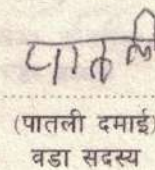 पातली
(पातली दमाई)
वडा सदस्य